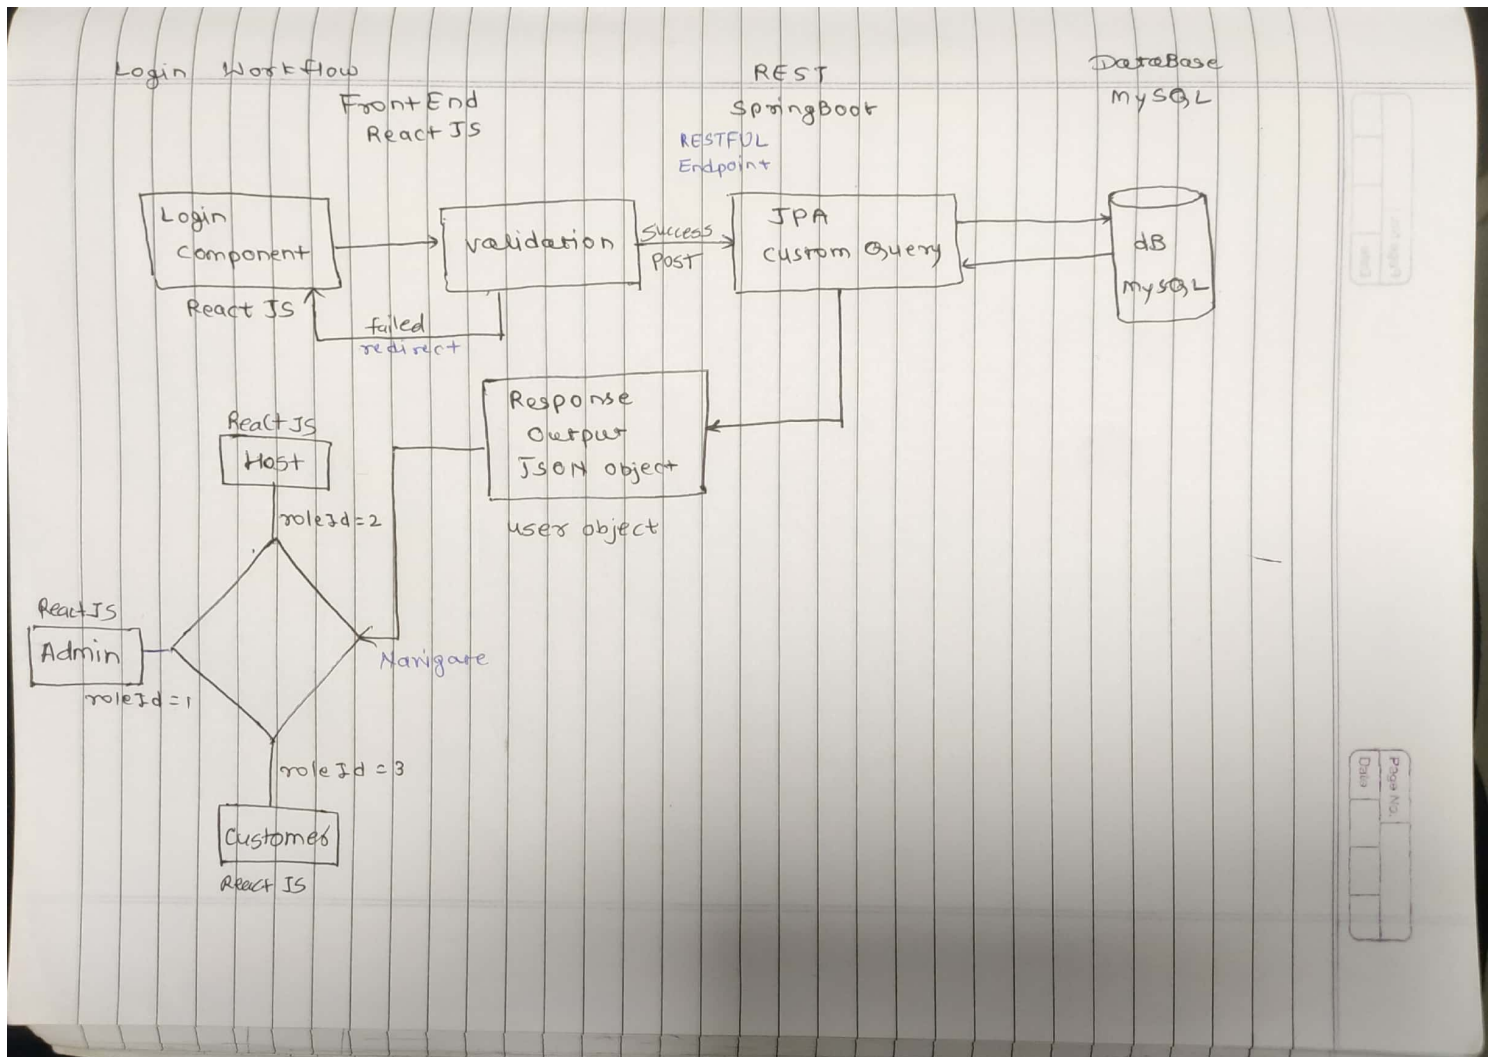 Login Workflow
FrontEnd
React JS
REST
SpringBoot
DataBase
MySQL
RESTFUL
Endpoint
Login
Component
React JS
validation
Success
POST
JPA
Custom Query
dB
MySQL
failed
redirect
Response
Output
JSON object
user object
React JS
Host
roleId=2
React JS
Admin
roleId=1
Navigate
roleId=3
Customer
React JS
Page No.
Date